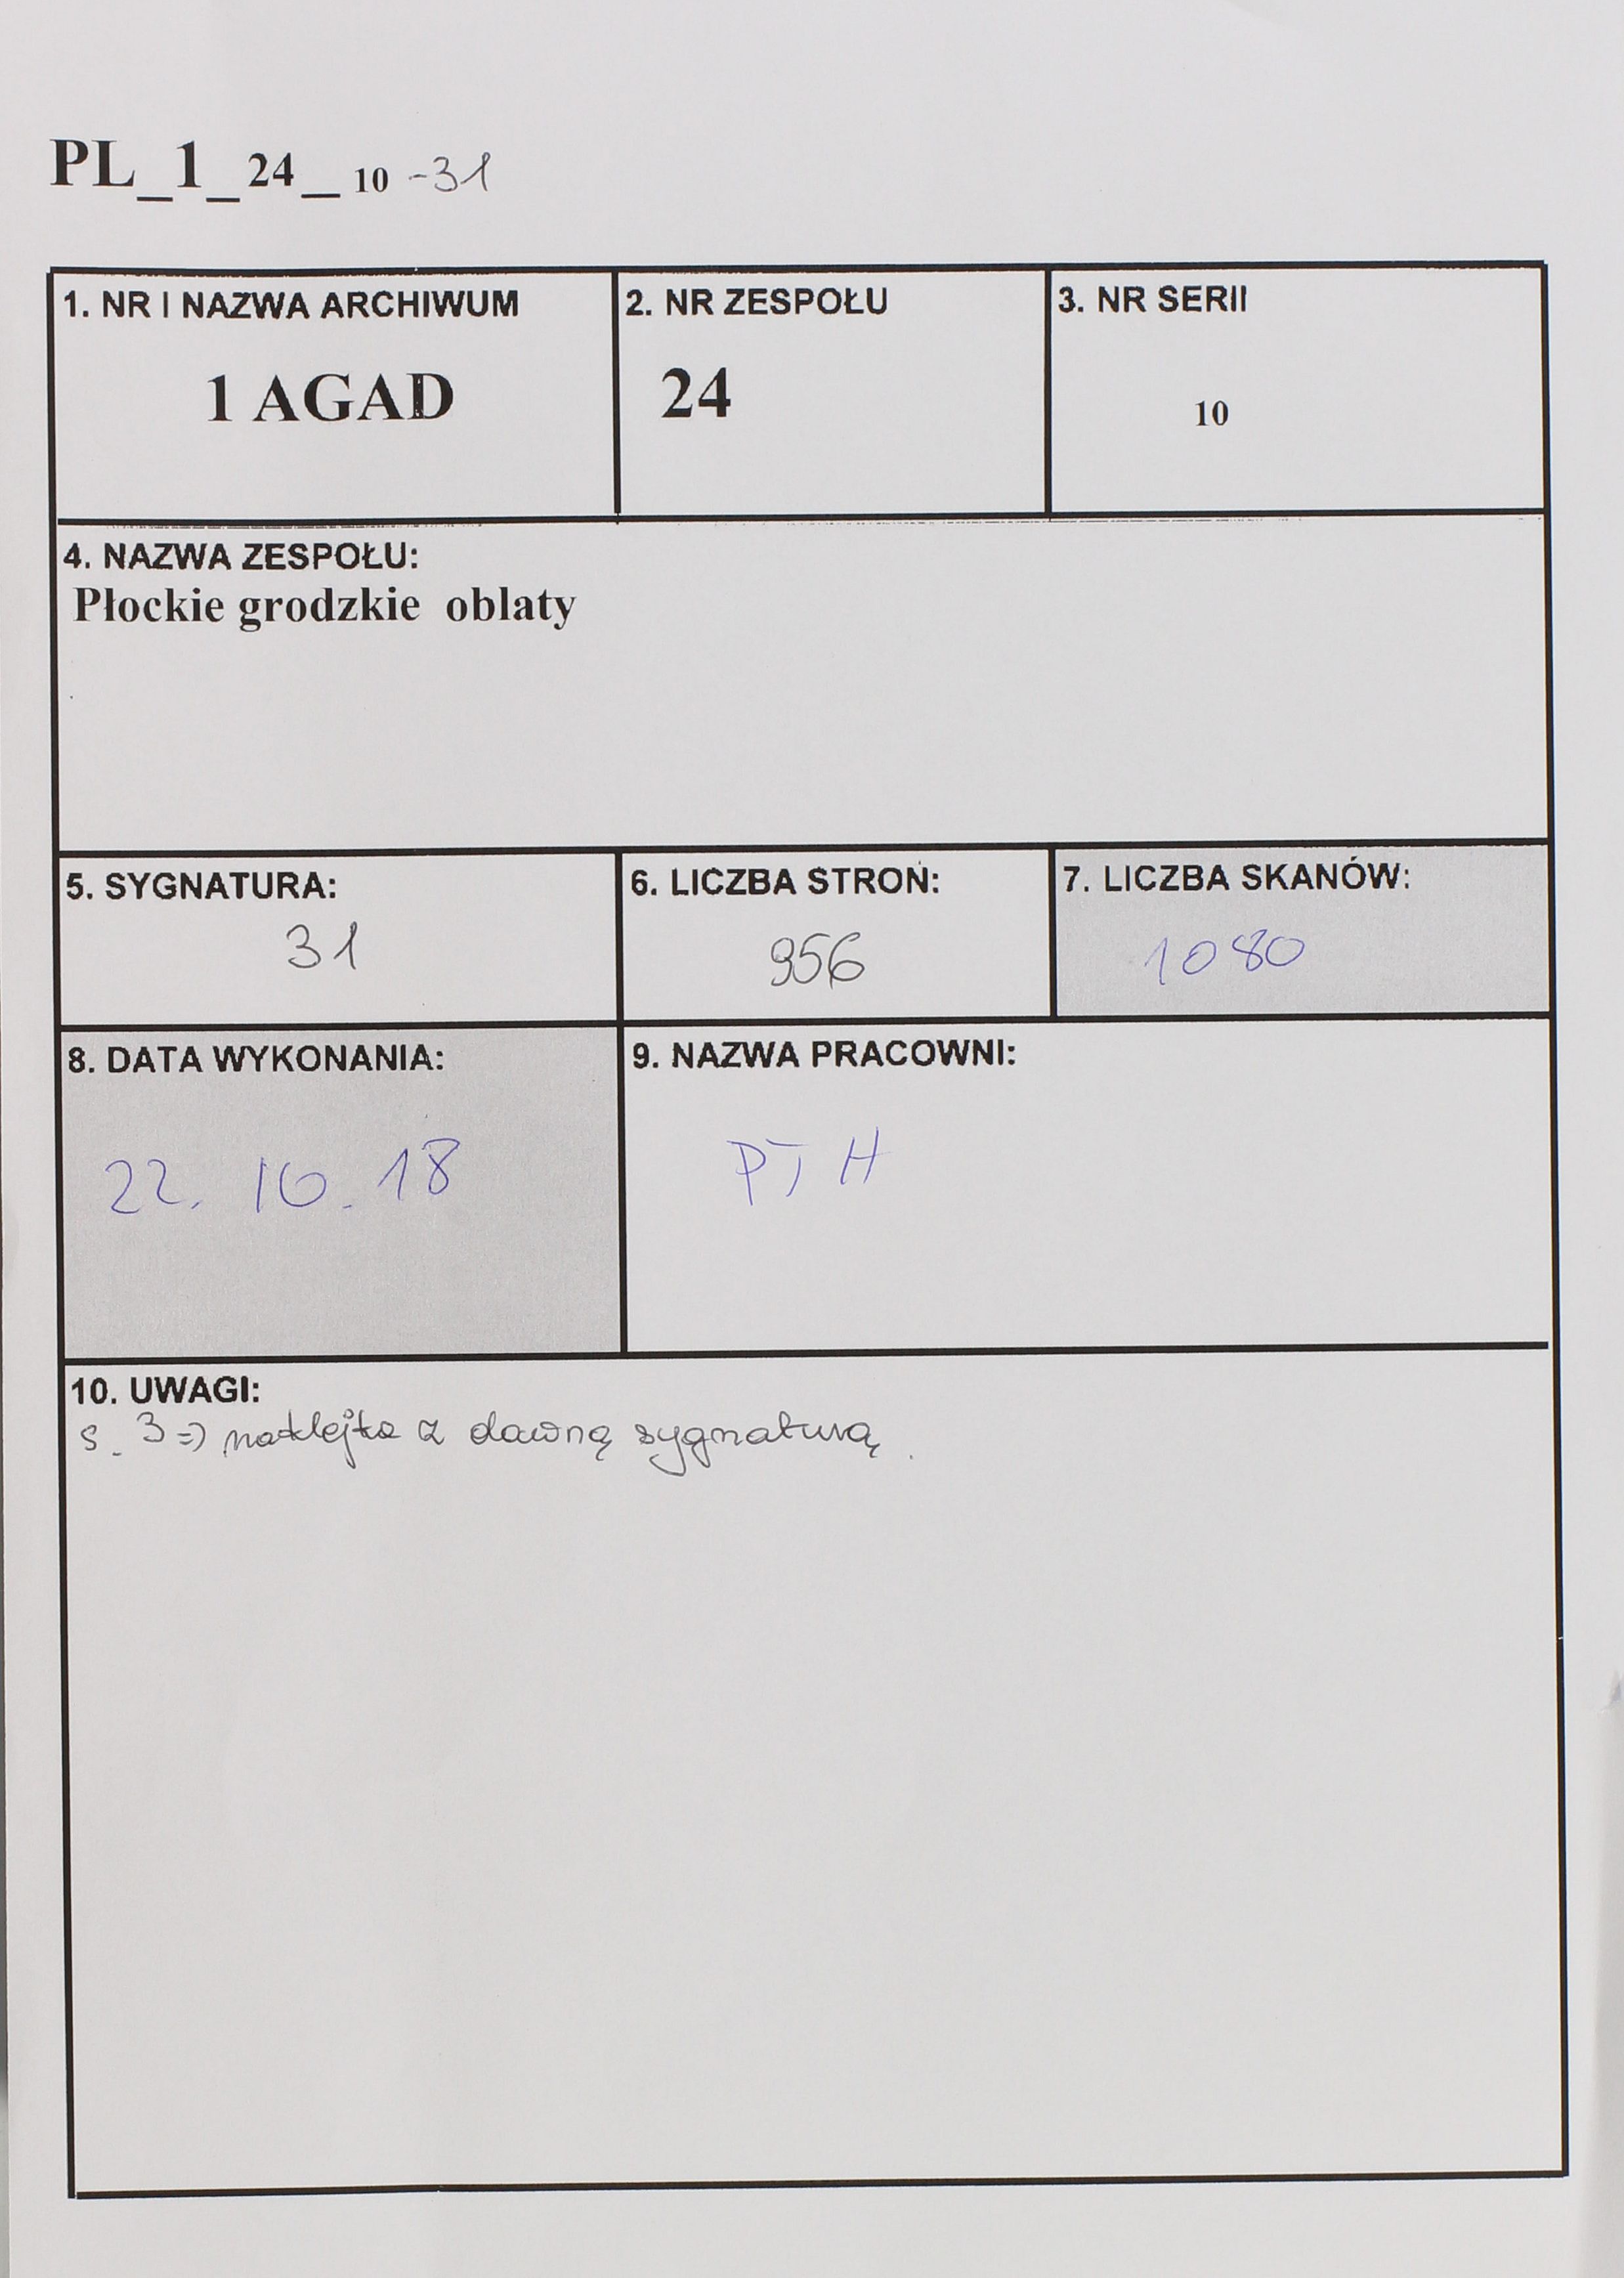 PL_1_24_10 -31
1. NR I NAZWA ARCHIWUM
1 AGAD
2. NR ZESPOŁU
24
3. NR SERII
10
4. NAZWA ZESPOŁU:
Płockie grodzkie oblaty
5. SYGNATURA:
31
6. LICZBA STRON:
956
7. LICZBA SKANÓW:
1080
8. DATA WYKONANIA:
22. 10. 18
9. NAZWA PRACOWNI:
PTH
10. UWAGI:
s. 3 => naklejka z dawną sygnaturą.